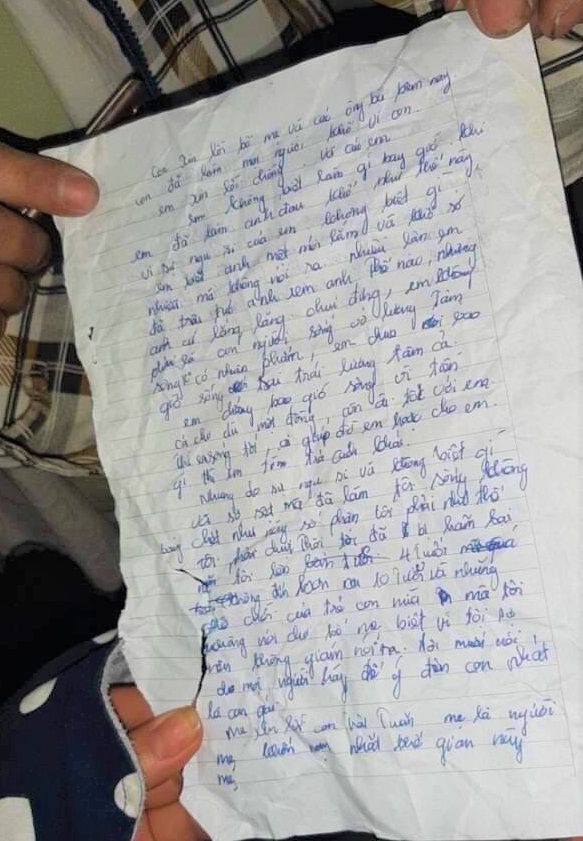 Con xin lỗi bố mẹ và các ông bà hôm nay
con đã làm mọi người khổ vì con.
em xin lỗi chồng và các em
em không biết làm gì bây giờ khi
em đã làm anh đau khổ như thế này,
vì sự ngu si của em không biết gì
em biết anh mệt mỏi lắm và khổ sở
nhiều mà không nói ra nhiều lần em
đã trêu tức anh xem anh thế nào, nhưng
anh cứ lẳng lặng chịu đựng, em không
phải là con người sống vô lương tâm
sống k có nhân phẩm, em chưa bao
giờ sống trái lương tâm cả.
em chẳng bao giờ sống vì tiền
cả cho dù một đồng, còn ai tốt với em
thì em
gì thì em tìm trả cách khác.
nhưng do sự ngu si và không biết gì
và sợ sệt mà đã làm tôi sống không
bằng chết như này số phận tôi phải như thế
tôi phải chịu thôi tôi đã bị hãm hại
tôi hơn bốn tuổi 4 tuổi
không đến hơn 10 tuổi và những
trò chơi của trẻ con nữa mà tôi
không nói cho bố mẹ biết vì tôi sợ
nên không giam nói ra. tôi muốn nói
cho mọi người hãy để ý đến con nhất
là con gái.
Mẹ xin lỗi con hai Tuấn mẹ là người
mẹ nhất thế gian này
mẹ